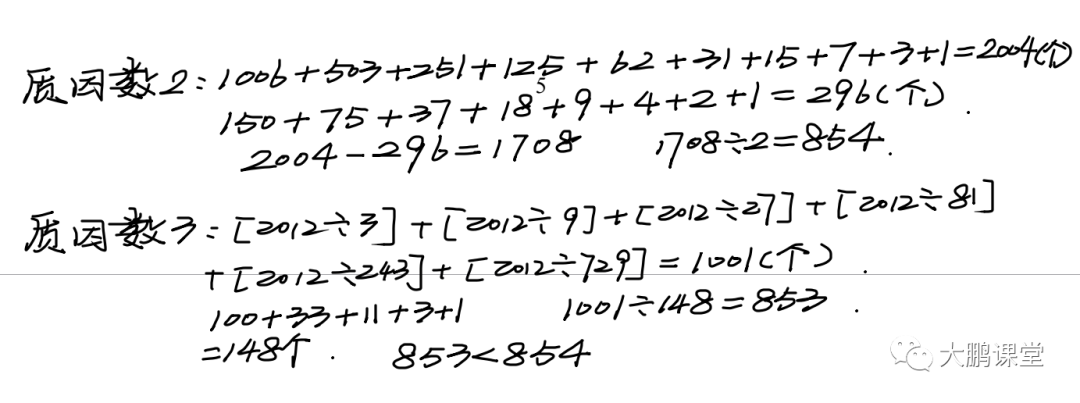 质因数2:1006+503+251+125+62+31+15+7+3+1=2004(个)
5
150+75+37+18+9+4+2+1=296(个).
2004-296=1708 1708÷2=854.
质因数3:[2012÷3]+[2012÷9]+[2012÷27]+[2012÷81]
+[2012÷243]+[2012÷729]=1001(个).
100+33+11+3+1 1001÷148=853.
=148个. 853<854
大鹏课堂